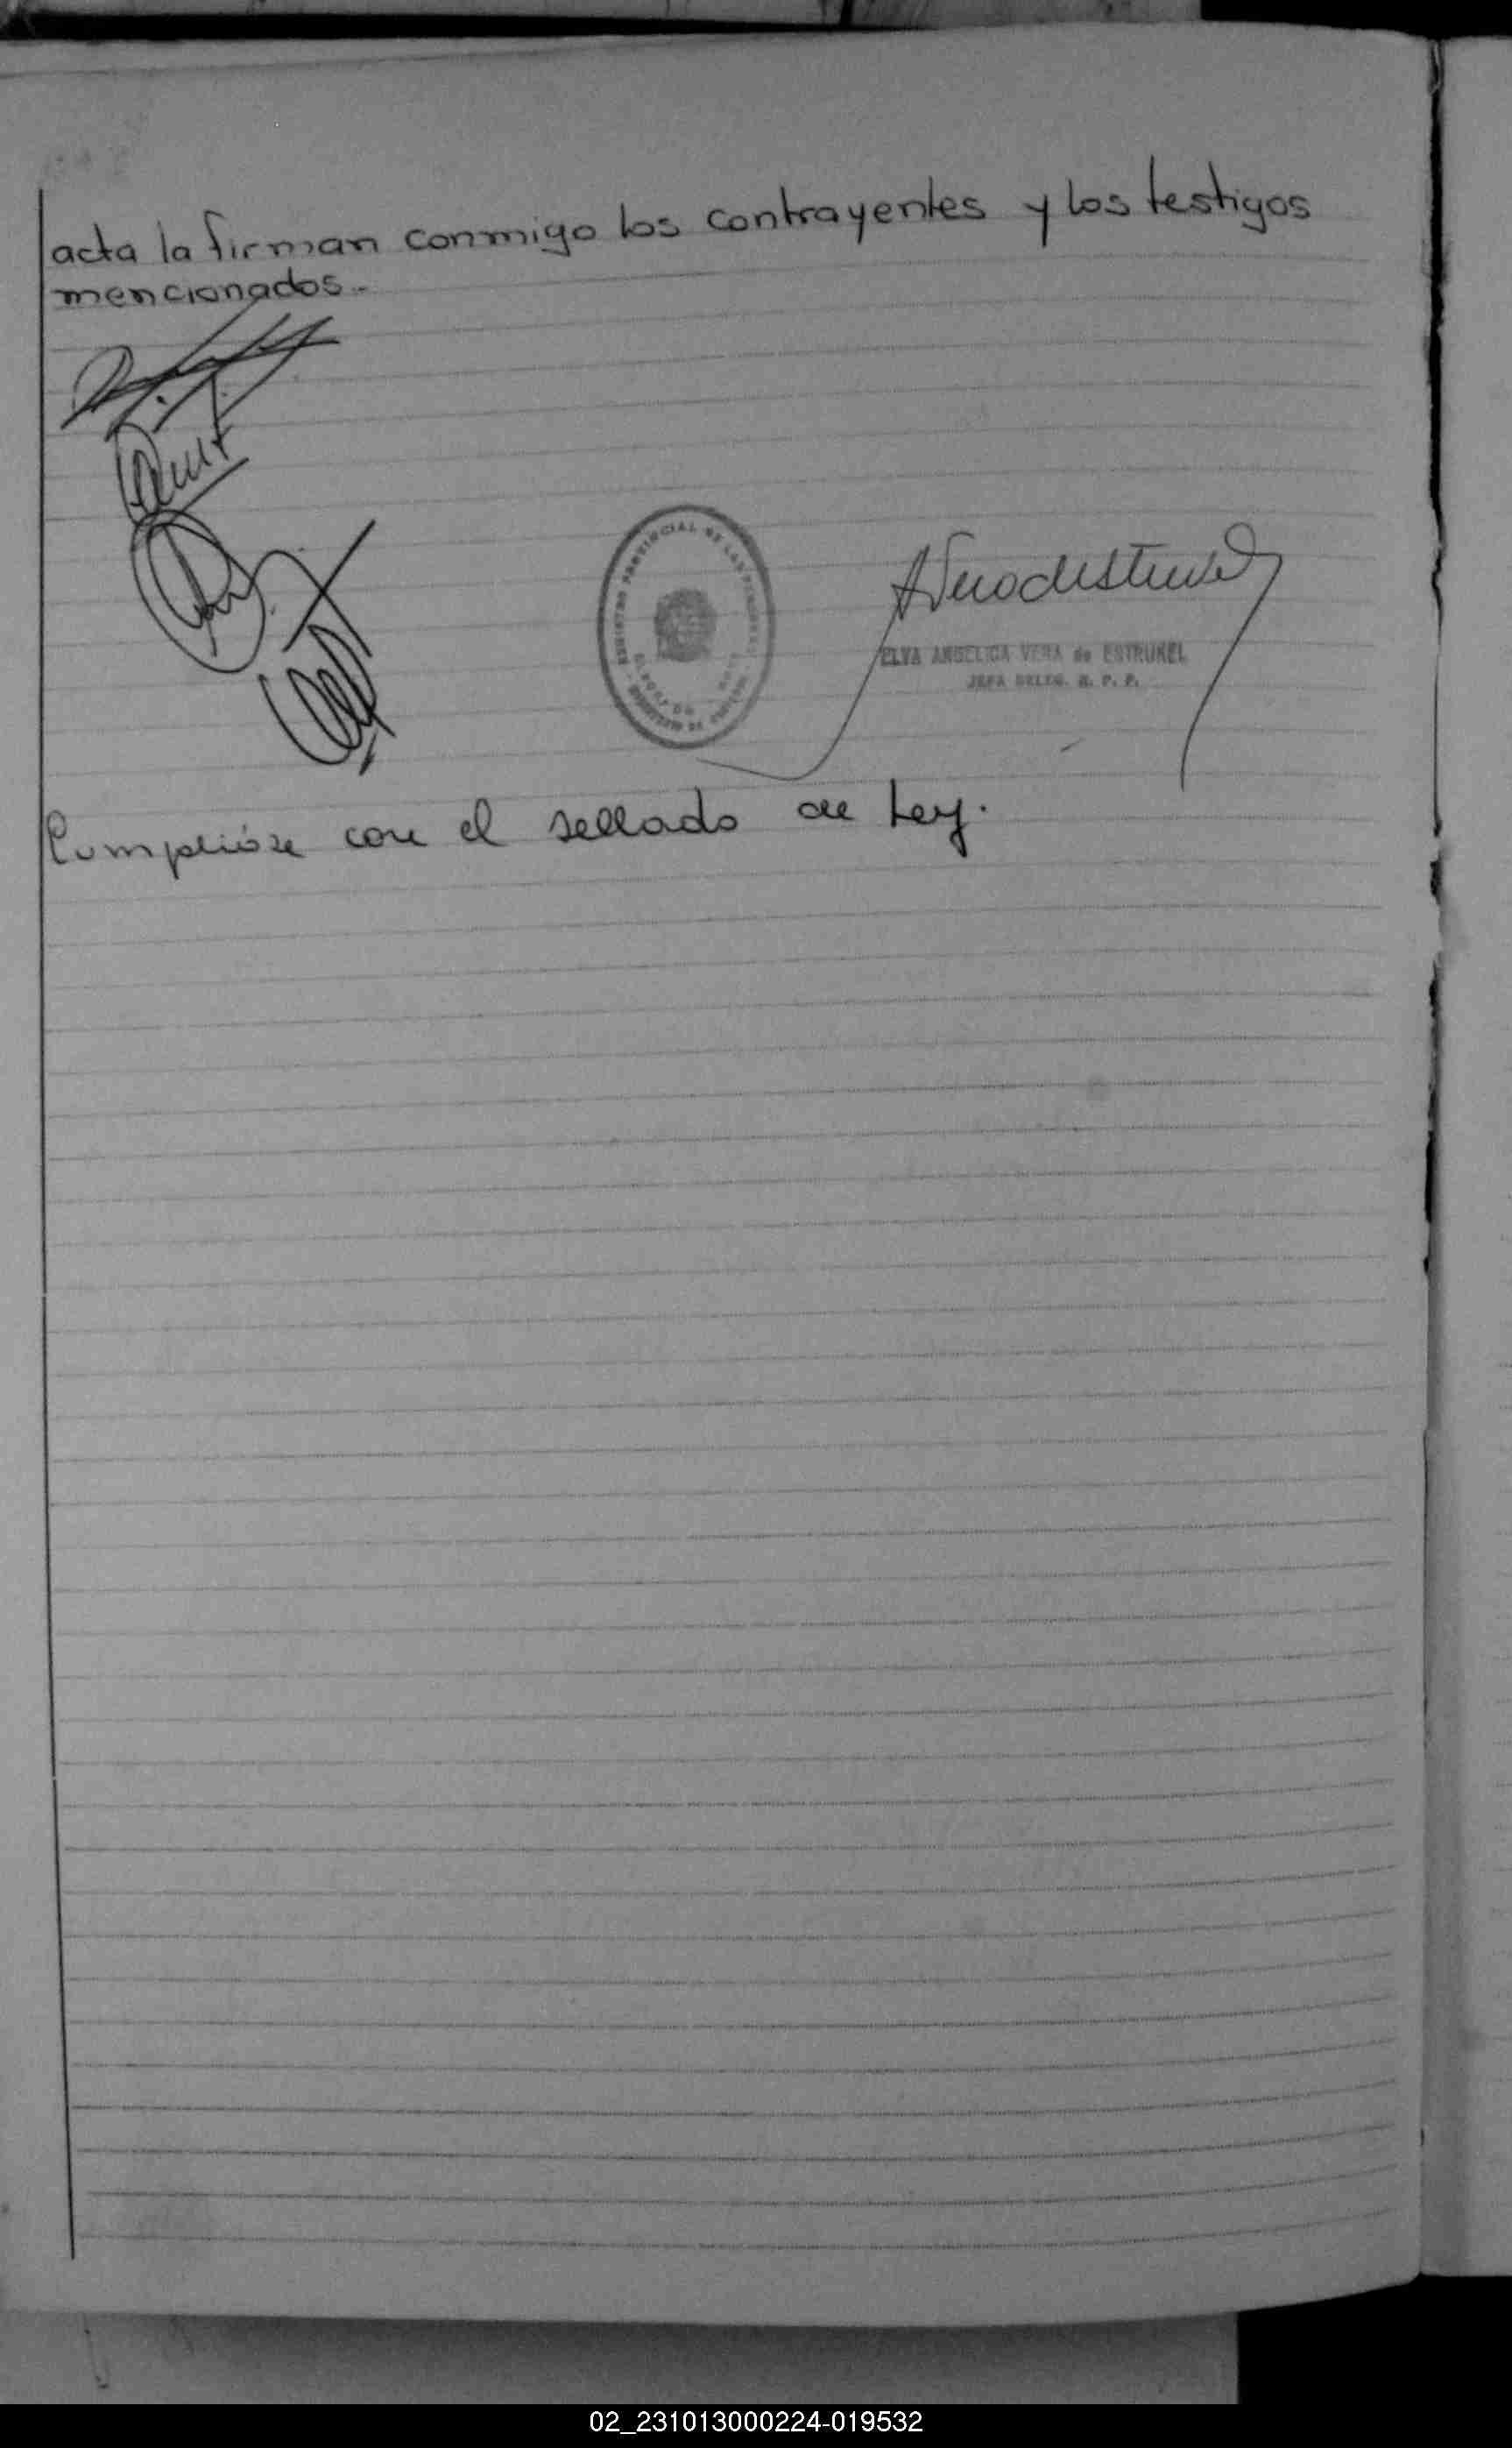 acta la firman conmigo los contrayentes y los testigos
mencionados.-
REGISTRO PROVINCIAL DE LAS PERSONAS
ELVA ANGELICA VERA de ESTRUKEL
JEFA DELEG. R. P. P.
Cumplióse con el sellado de Ley.
02_231013000224-019532